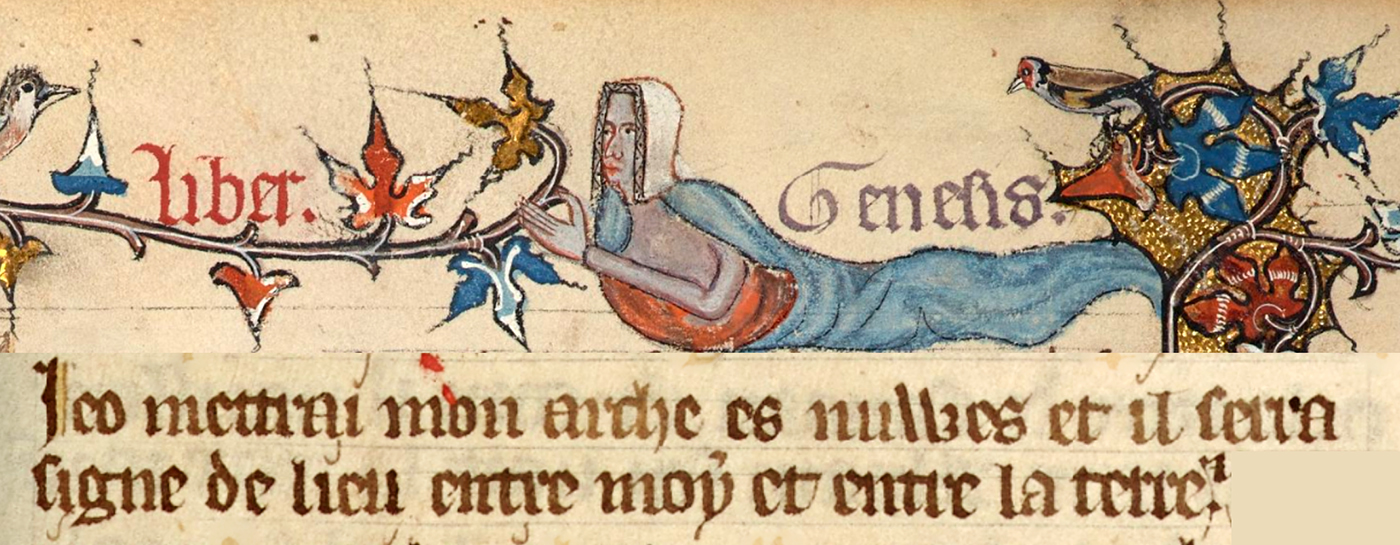 liber. Genesis.
Jeo mettrai mon arche es nuwes et il serra
signe de lieu entre moy et entre la terre.